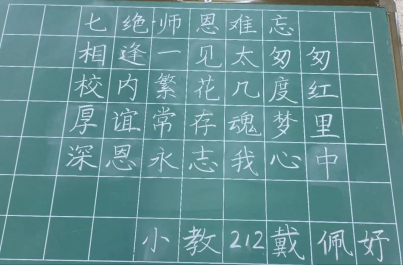 七绝师恩难忘
相逢一见太匆匆
校内繁花几度红
厚谊常存魂梦里
深恩永志我心中
小教212戴佩好